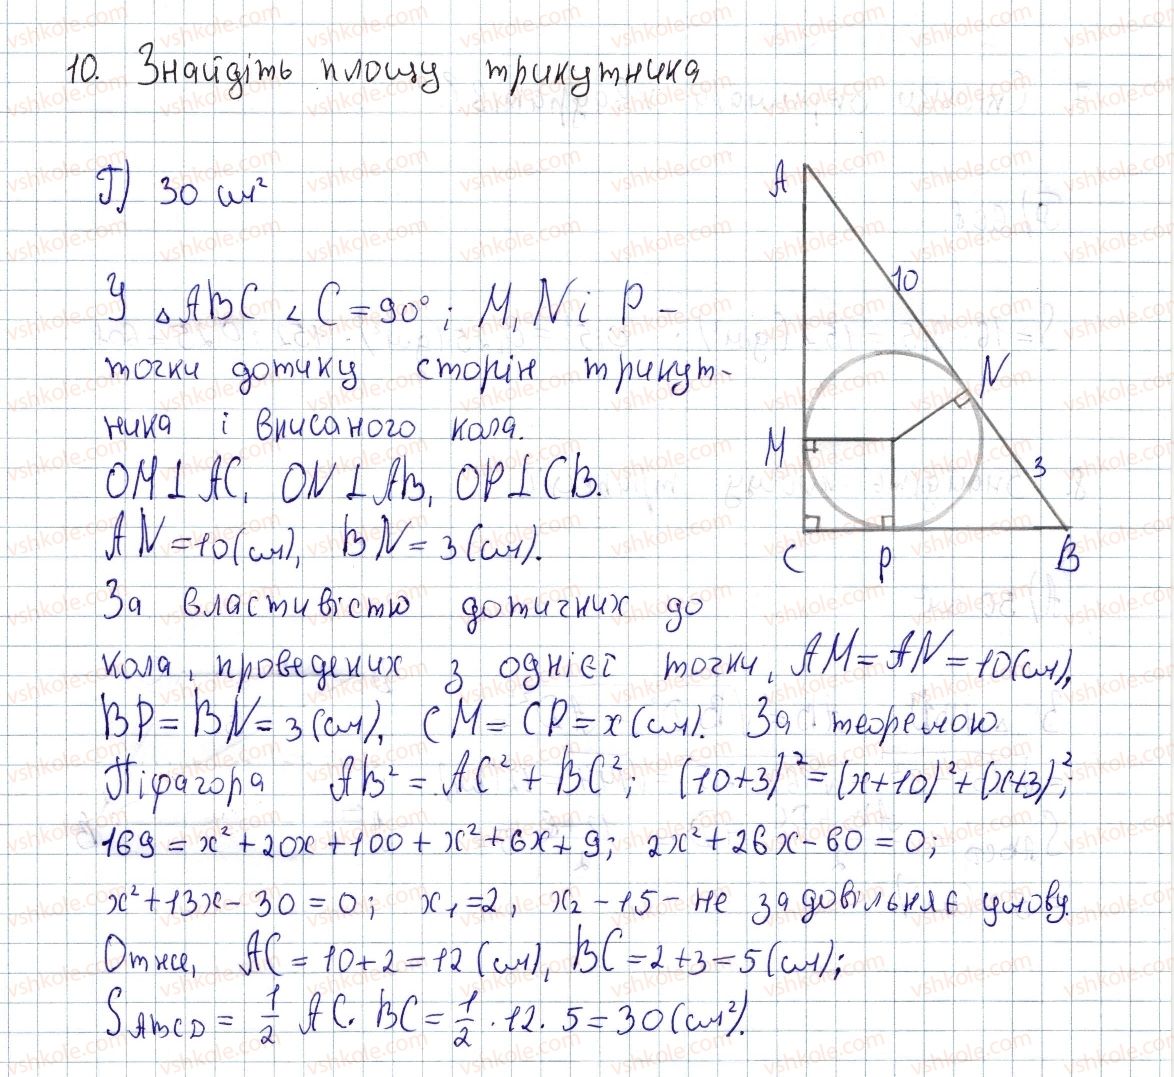 10. Знайдіть площу трикутника
Г) 30 см²
У △ABC ∠C = 90°; M, N і P –
точки дотику сторін трикут-
ника і вписаного кола.
OM⊥AC, ON⊥AB, OP⊥CB.
AN = 10(см), BN = 3(см).
За властивістю дотичних до
кола, проведених з однієї точки, AM = AN = 10(см),
BP = BN = 3(см), CM = CP = x(см). За теоремою
Піфагора AB² = AC² + BC²; (10+3)² = (x+10)² + (x+3)²;
169 = x² + 20x + 100 + x² + 6x + 9; 2x² + 26x – 60 = 0;
x² + 13x – 30 = 0; x₁ = 2, x₂ – 15 – не задовільняє умову.
Отже, AC = 10 + 2 = 12 (см), BC = 2 + 3 = 5 (см);
S ABCD = 1/2 AC · BC = 1/2 · 12 · 5 = 30 (см²).
A
10
N
M
3
C P B
vshkole.com